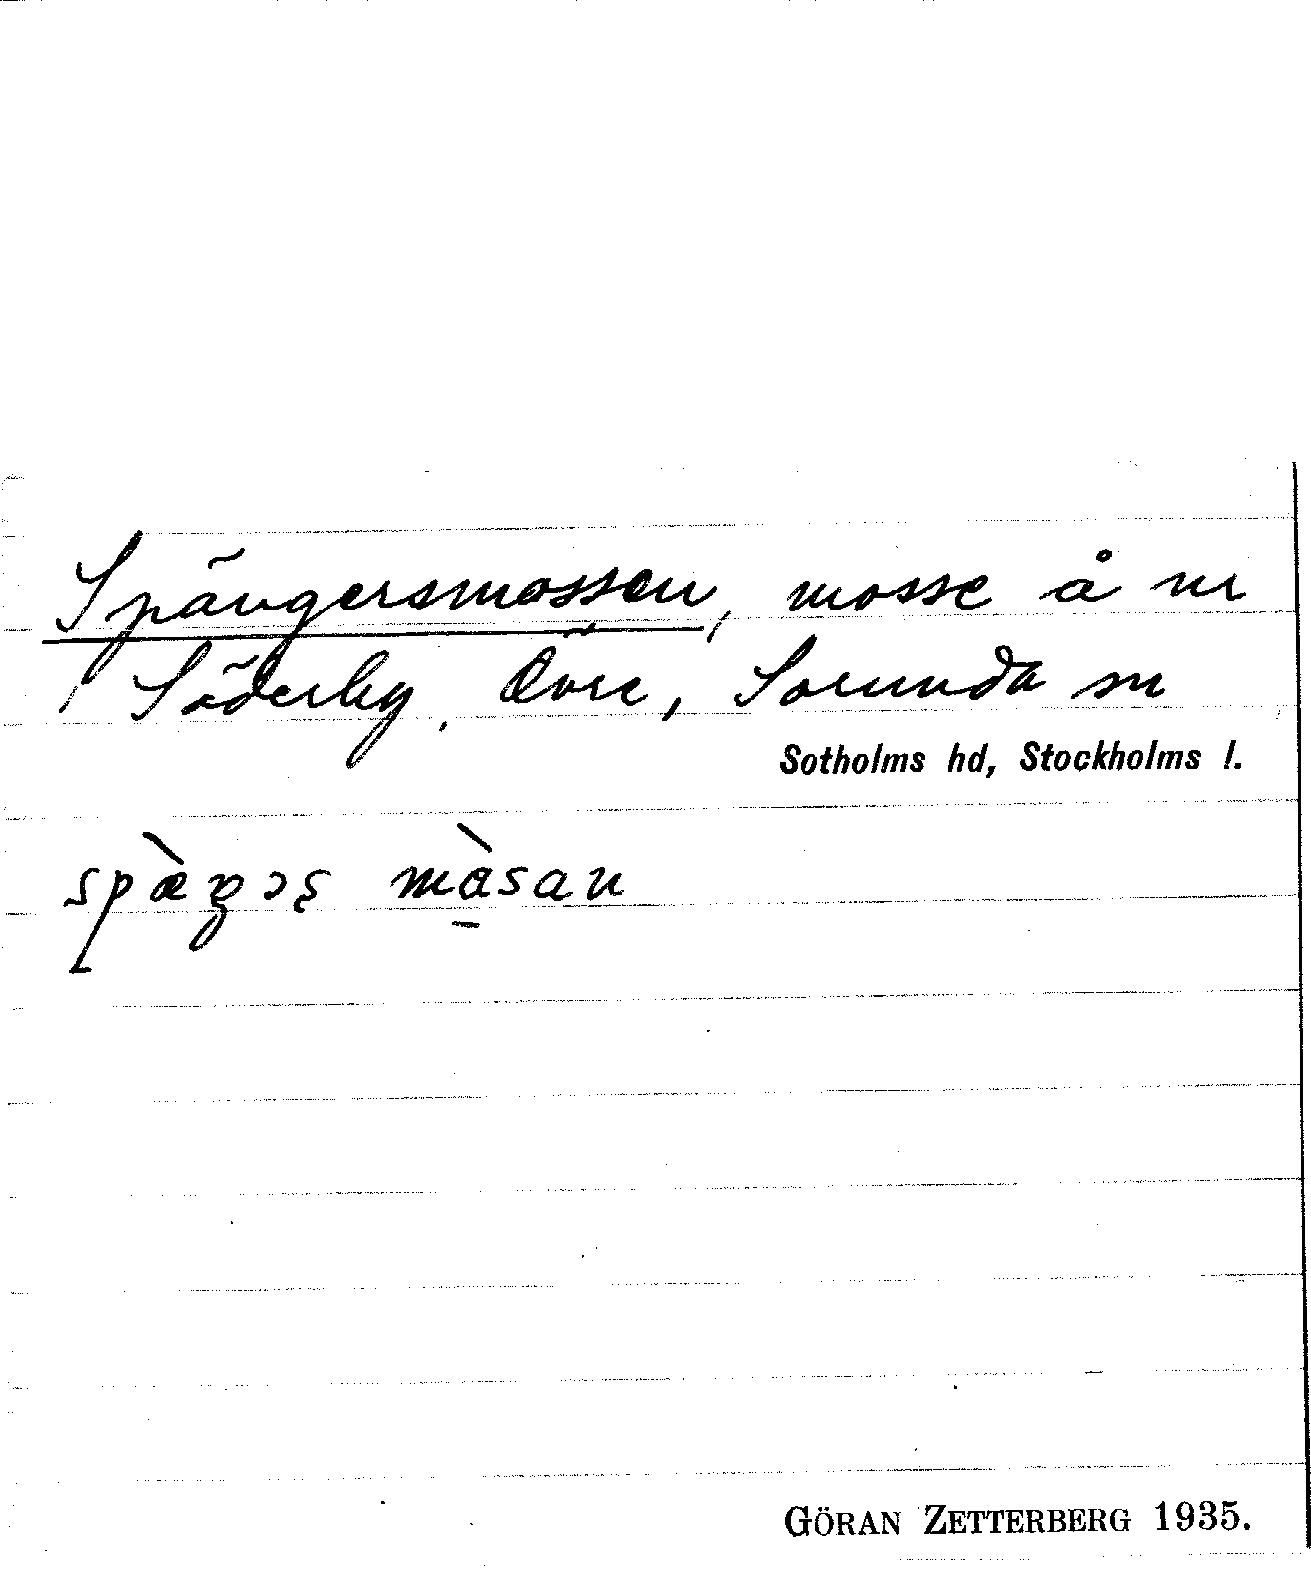 Spängersmossen, mosse å nr
1 Söderby, Övre, Sorunda sn
Sotholms hd, Stockholms l.
GÖRAN ZETTERBERG 1935.